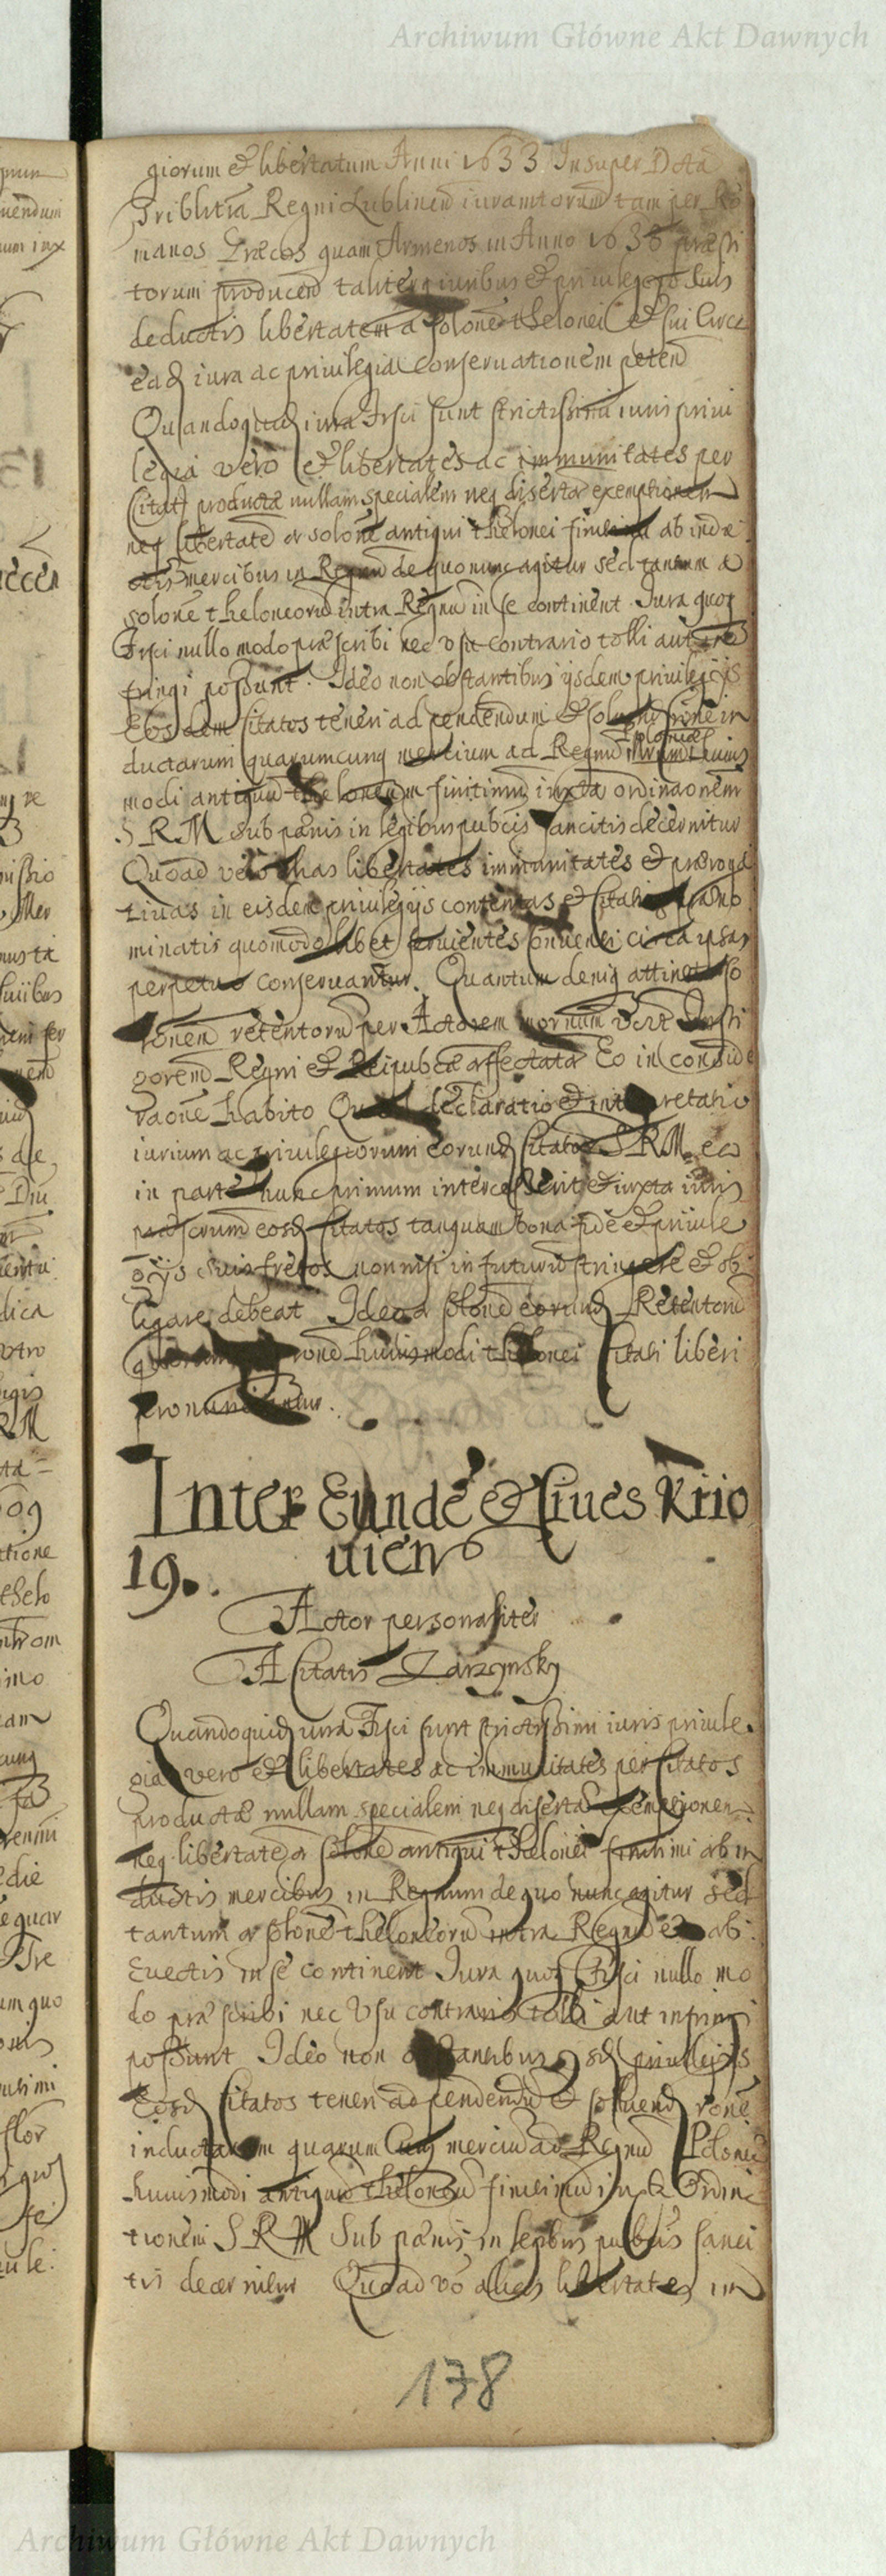 Archiwum Główne Akt Dawnych
giorum et libertatum Anni 1633. Insuper Dctā
Triblitiā Regni Lublinen iuramtorum tam per Ro
manos Græcos quam Armenos in Anno 1636 præsti
torum producen taliterq iuribus et priuilegijs suis
deductis libertatem a solone thelonei et sui circa
ead iura ac priuilegia conseruationem peten
Quandoquid iura Fisci sunt strictissimi iuris priui
legia vero et libertates ac immunitates per
Citat productæ nullam specialem neq disertā exemptionem
neq libertatē a solone antiqui thelonei finitimi ab indu
ctis mercibus in Regnū de quo nunc agitur sed tantum a
solone theloneorū intra Regnū in se continent. Iura quoq
Fisci nullo modo præscribi nec vsu contrario tolli aut
fringi possunt. Ideo non obstantibus ijsdem priuilegijs
Eosdem Citatos teneri ad pendendum et solu in
ductarum quarumcunq mercium ad Regnū Poloniæ huius
modi antiquū theloneum finitimū iuxta ordinaonem
S R M sub pænis in legibus pubcis sancitis decernitur
Quoad vero has libertates immunitates et præroga
tiuas in eisdem priuilegijs contentas et Citatis no
minatis quomodolibet seruientes circa ipsas
perpetuo conseruantur. Quantum deniq attinet so
lonem retentorū per Actorem Insti
gorem Regni et Reipubcæ affectatā Eo in conside
raone habito Quod declaratio et interpretatio
iurium ac priuilegiorum eorund Citator S R M ea
in parte nunc primum intercesserit et iuxta iuris
præscrum eosd Citatos tanquam bona fide et priuile
gijs suis fretos non nisi in futurū stringere et ob
ligare debeat Ideo a solone eorund Retentorū
ronē huiusmodi thelonei Citati liberi
pronunciantur.
Inter Eundē et Ciues Kiio
19. uien
Actor personaliter
A Citatis Zarzynsky
Quandoquid iura Fisci sunt strictissimi iuris priuile
gia vero et libertates ac immunitates per Citatos
productæ nullam specialem neq disertā exemptionem
neq libertatē a solone antiqui thelonei finitimi ab in
ductis mercibus in Regnum de quo nunc agitur sed
tantum a solone theloneorū intra Regnū et ab
Euectis in se continent Iura quoq Fisci nullo mo
do præscribi nec vsu contrario tolli aut infringi
possunt Ideo non obstantibus ijsd priuilegijs
Eosd Citatos teneri ad pendendū et soluend ronē
inductarum quarumcunq merciū ad Regnū Poloniæ
huiusmodi antiquū theloneū finitimū iuxta Ordina
tionem S R M Sub pænis in legibus pubcis sanci
tis decernitur Quoad vō alias libertates im
178
Archiwum Główne Akt Dawnych